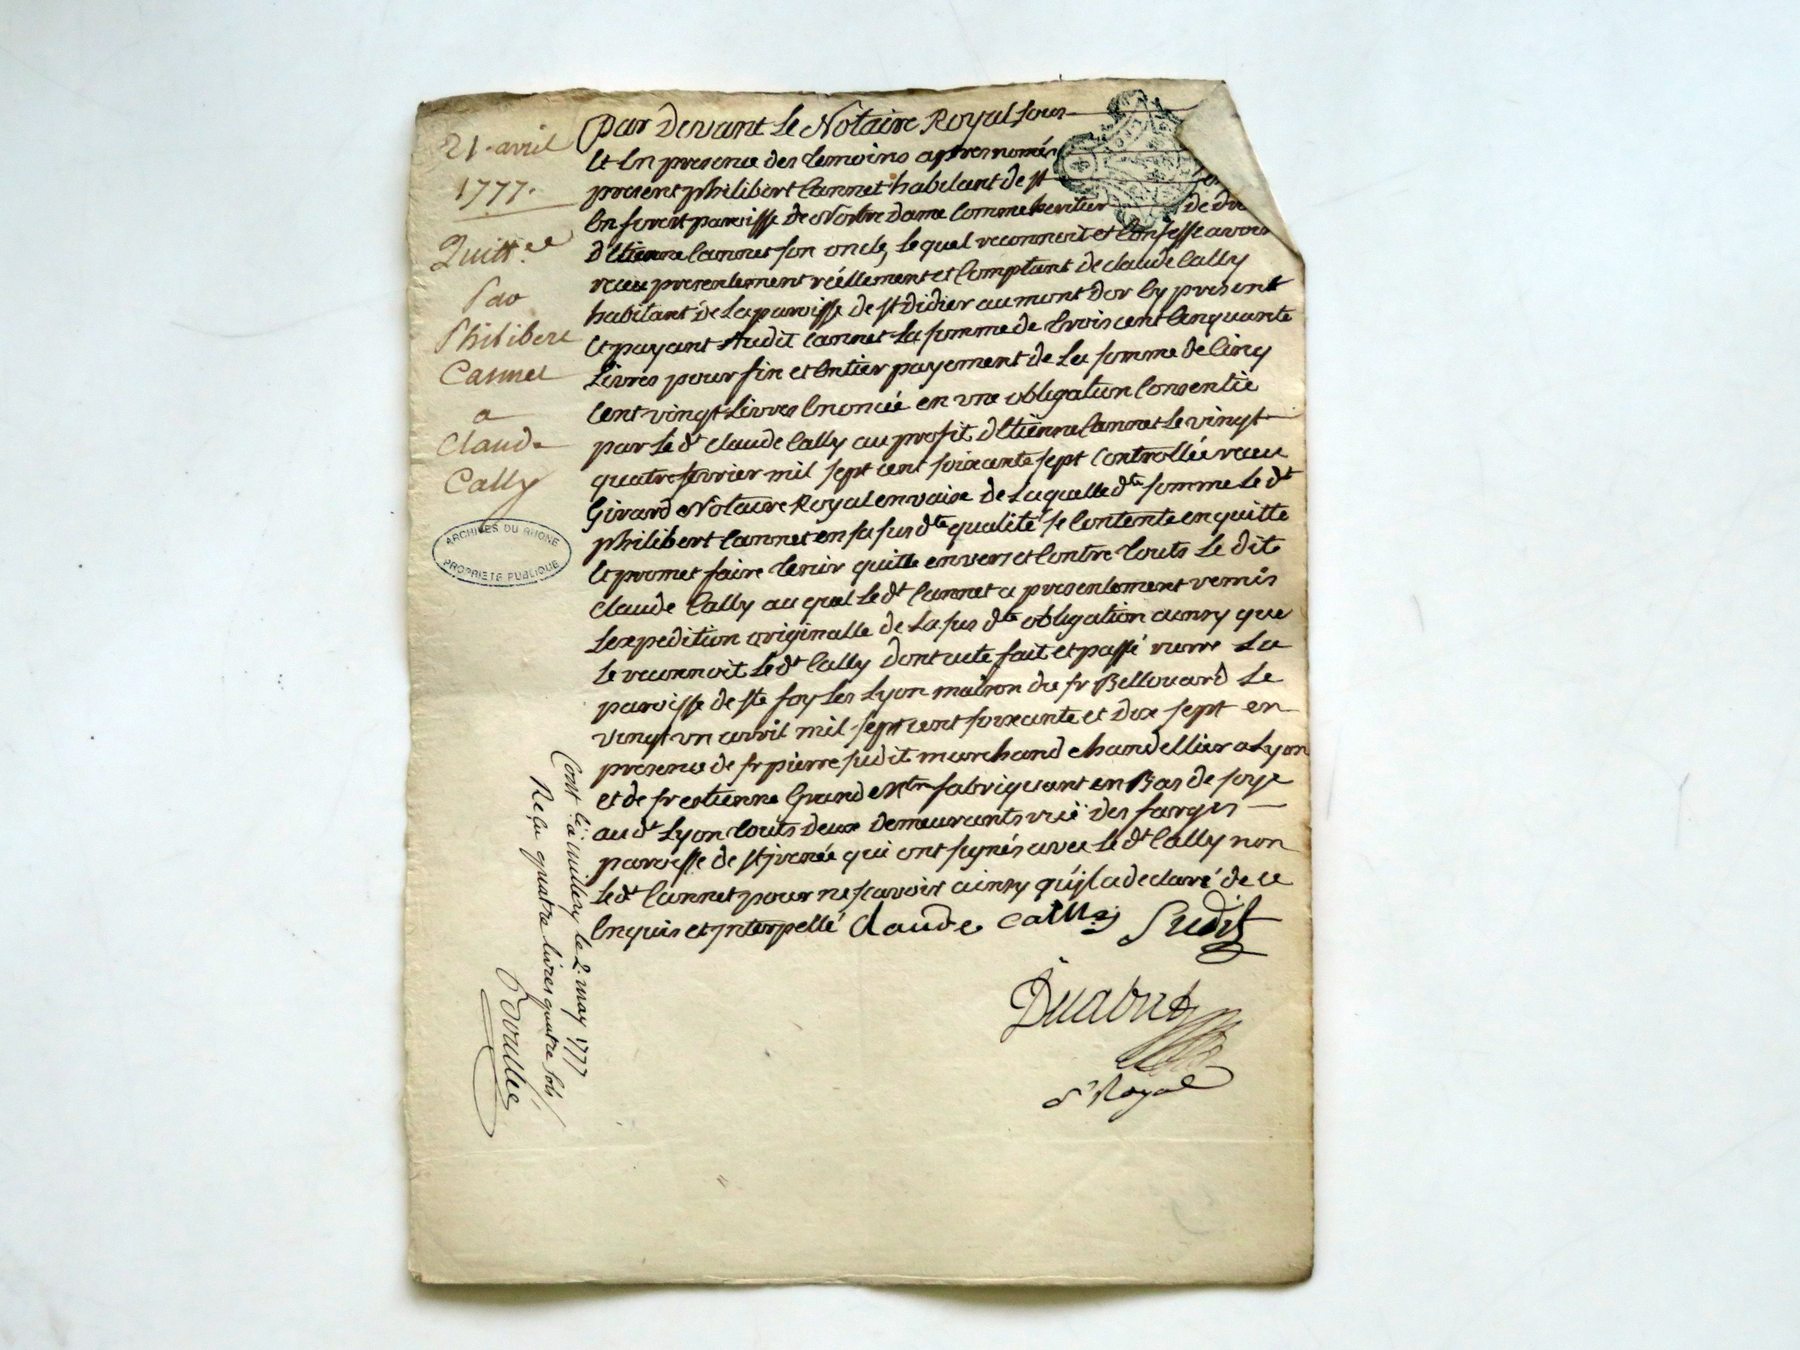 21. avril
1777.
Quitt.ce
Par
Philibert
Cannet
a
Claude
Cally
ARCHIVES DU RHONE
PROPRIETE PUBLIQUE
Par Devant Le Notaire Royal sous
et En presence des temoins apres només
present philibert Cannet habitant de st
En forest paroisse de Nostre dame Comme heritier de
d'Etienne Cannet son oncle, lequel reconnoit et Confesse avoir
receu presentement réellement et Comptant de claude Cally
habitant de La paroisse de st didier au mont dor Cy present
et payant Audit Cannet La somme de trois cent Cinquante
Livres pour fin et Entier payement de La somme de Cinq
Cent vingt Livres Enoncée en une obligation Consentie
par Le dt claude Cally au profit d'Etienne Cannet Le vingt
quatre fevrier mil sept cent soixante sept Controllée receu
Girard Notaire Royal en vaise de Laquelle dte somme Le dt
philibert Cannet en sa sus dte qualité se Contente en quitte
et promet faire tenir quitte envers et Contre touts Le dit
claude Cally au quel Le dt Cannet a presentement remis
Lexpedition originalle de La sus dte obligation ainsy que
Le reconnoit Le dt Cally dont acte fait et passé La
paroisse de ste foy Les Lyon maison du sr Bellouard Le
vingt un avril mil sept cent soixante et dix sept en
presence de sr pierre sudit marchand chandellier a Lyon
et de sr estienne Grand mtre fabriquant en Bas de soye
au dt Lyon touts deux demeurants ruë des farges
paroisse de st jrenée qui ont signés avec Le dt Cally non
Le dt Cannet pour ne scavoir ainsy qu'jl a declaré de ce
Enquis et jnterpellé Claude Cally Sudit
nre Royal
Contr.lé a le 2. may 1777
Reçu quatre livres quatre sols